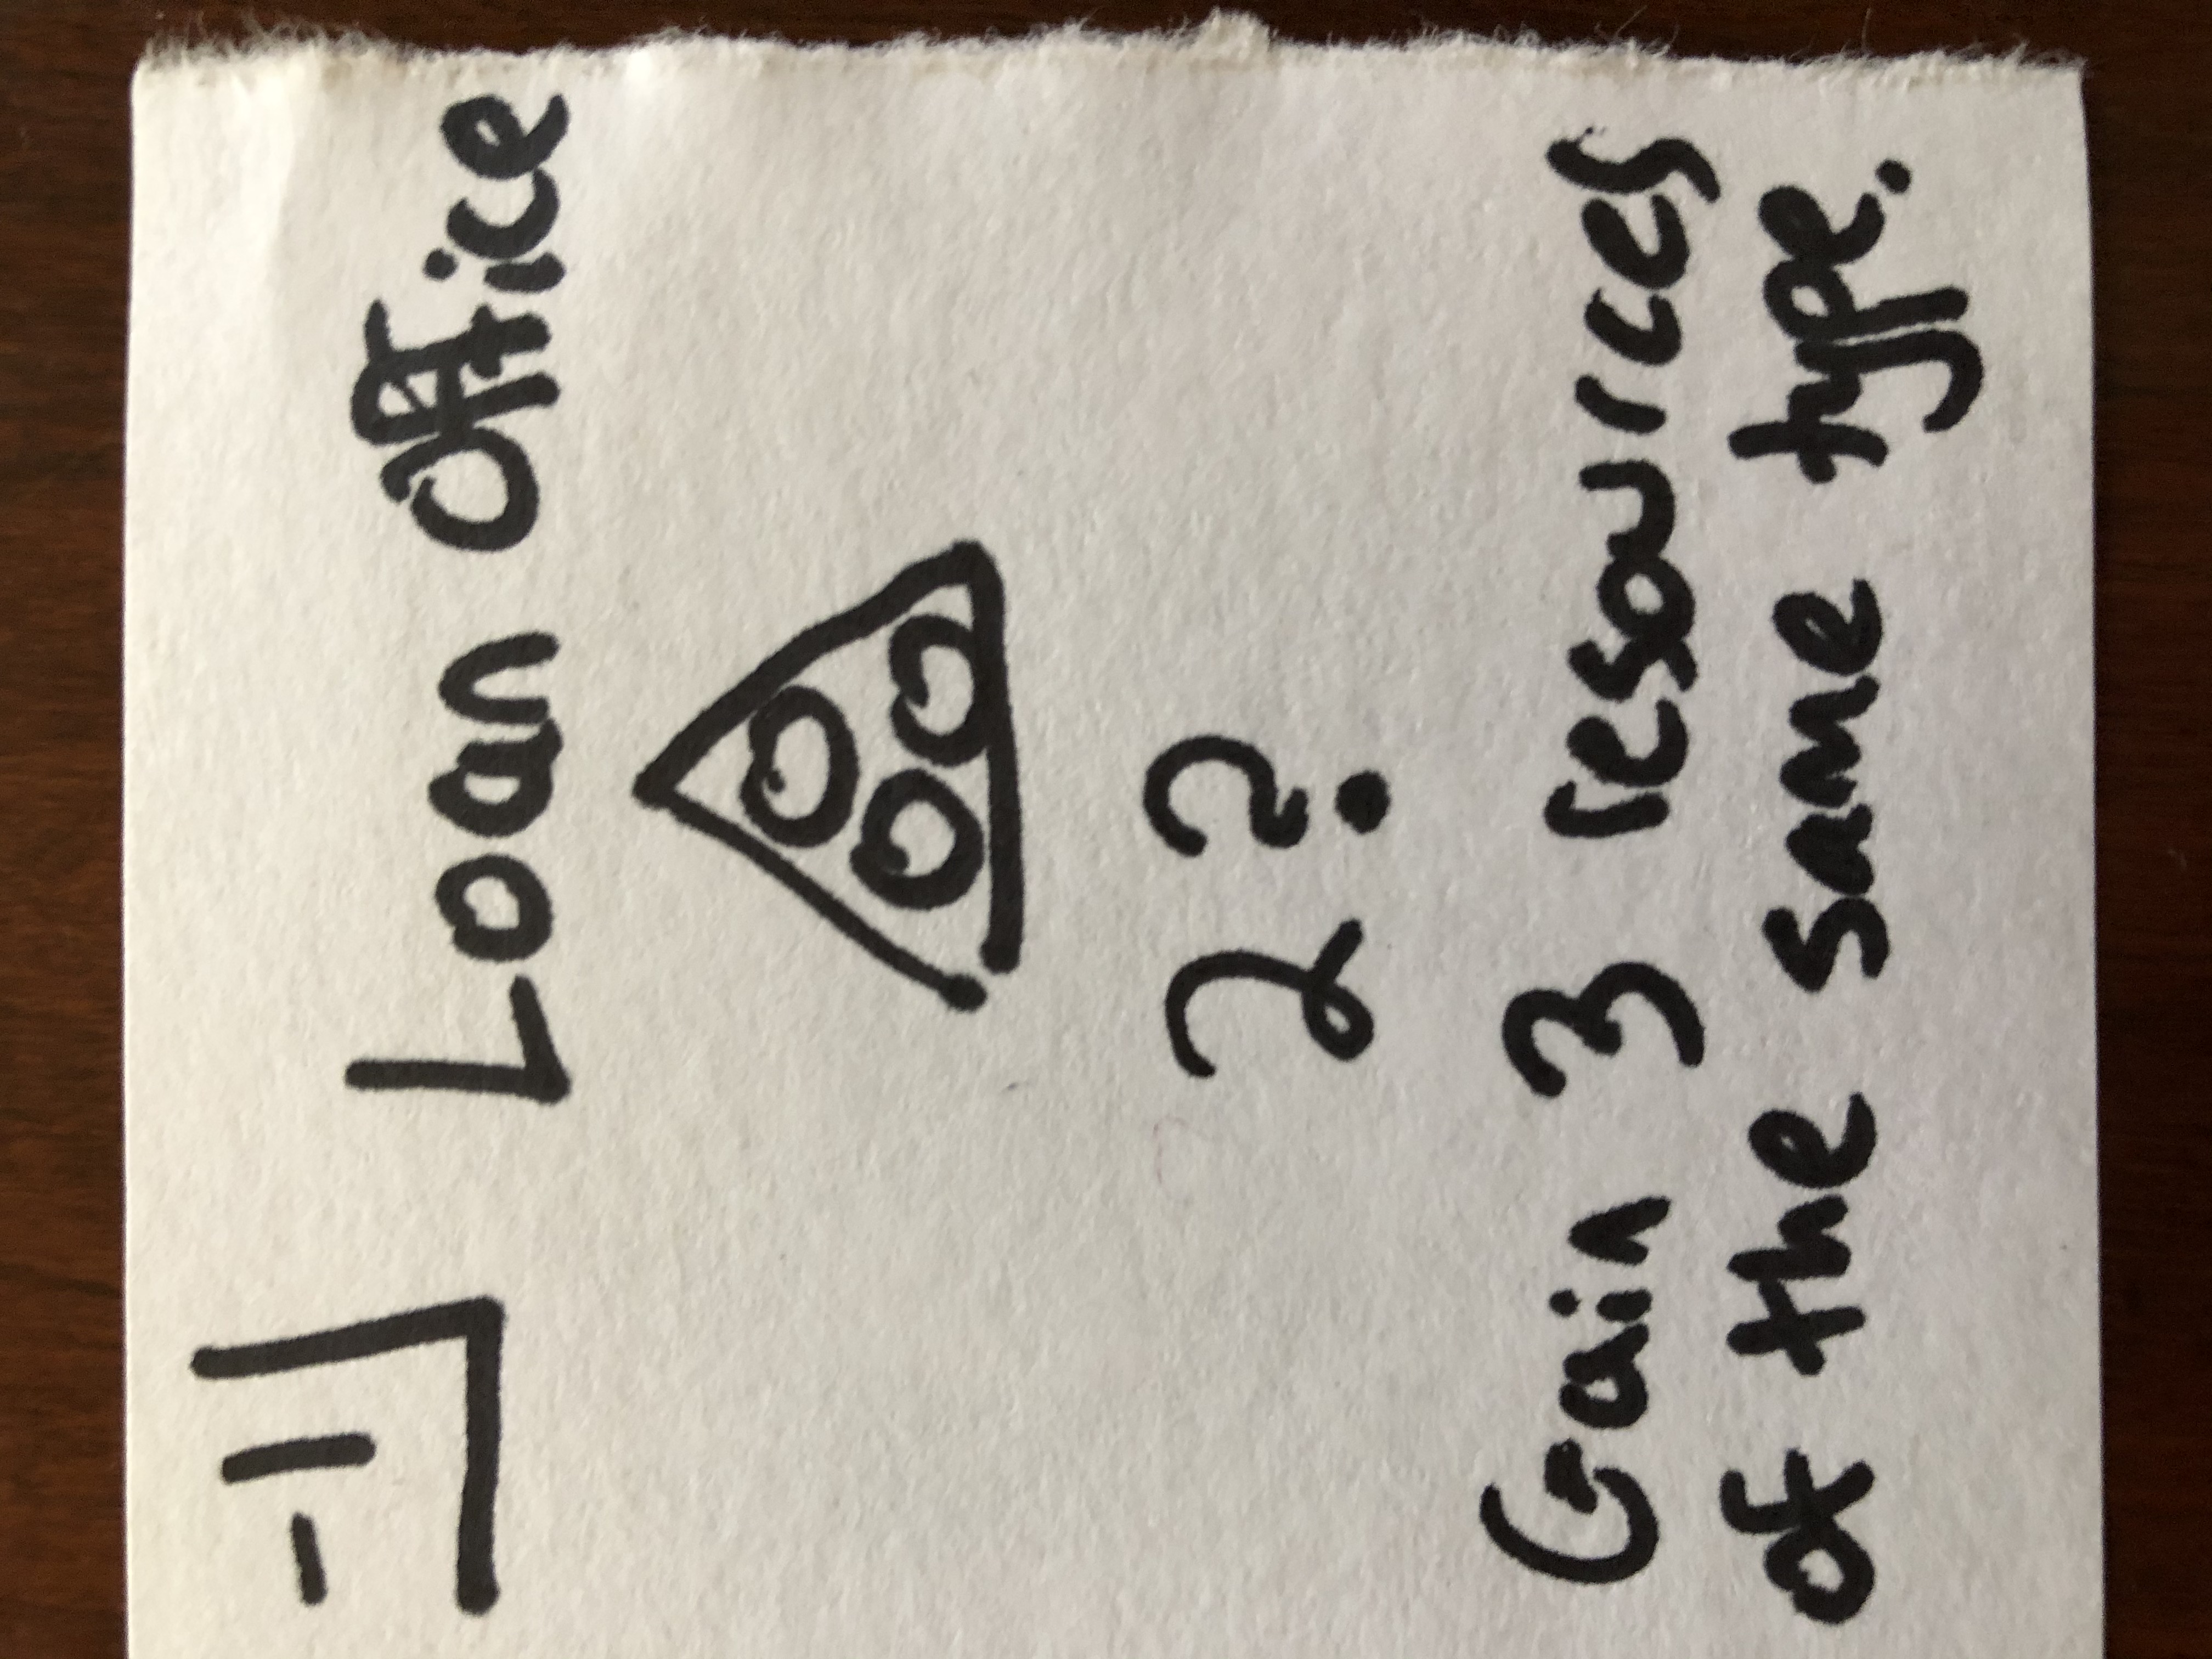 -1
Loan Office
2 ?
Gain 3 resources
of the same type.